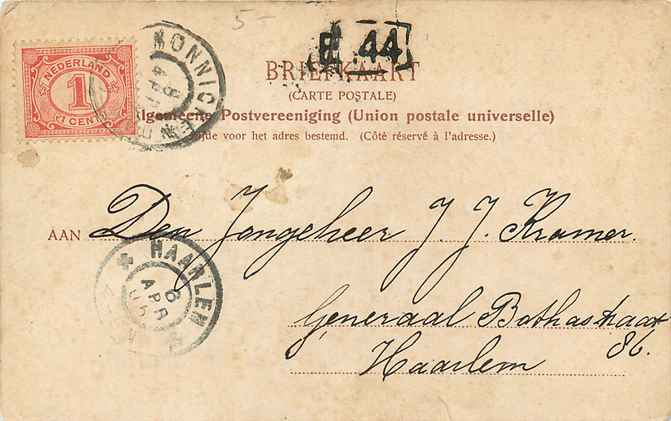 5-
E. 44
MONNICKE
8
APR
NEDERLAND
1
CENT
BRIEFKAART
(CARTE POSTALE)
Algemeene Postvereeniging (Union postale universelle)
voor het adres bestemd. (Côté réservé à l'adresse.)
AAN Den Jongeheer J. J. Kramer.
HAARLEM
6
APR
Generaal Bothastraat
86.
Haarlem